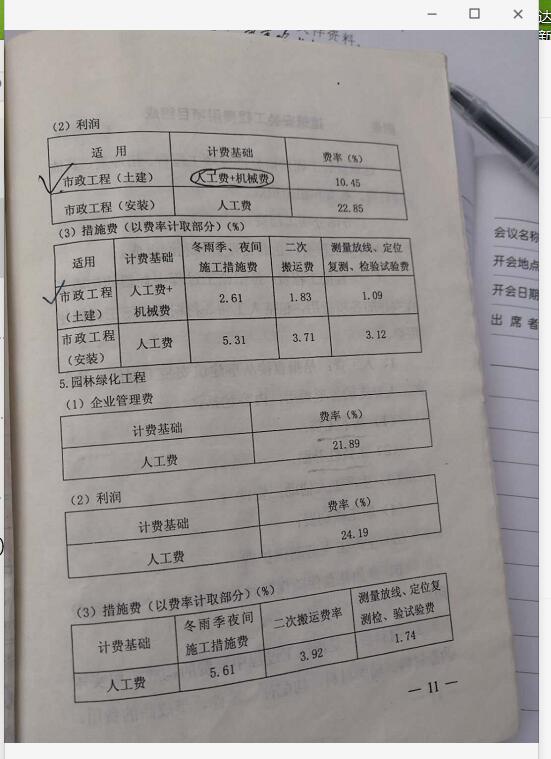 件资料.
(2)利润
适 用 计费基础 费率(%)
市政工程(土建) 人工费+机械费 10.45
市政工程(安装) 人工费 22.85
(3)措施费(以费率计取部分)(%)
适用 计费基础 冬雨季、夜间施工措施费 二次搬运费 测量放线、定位复测、检验试验费
市政工程(土建) 人工费+机械费 2.61 1.83 1.09
市政工程(安装) 人工费 5.31 3.71 3.12
5.园林绿化工程
(1)企业管理费
计费基础 费率(%)
人工费 21.89
(2)利润
计费基础 费率(%)
人工费 24.19
(3)措施费(以费率计取部分)(%)
计费基础 冬雨季夜间施工措施费 二次搬运费率 测量放线、定位复测检、验试验费
人工费 5.61 3.92 1.74
— 11 —
会议名称
开会地点
开会日期
出 席 者
达
新